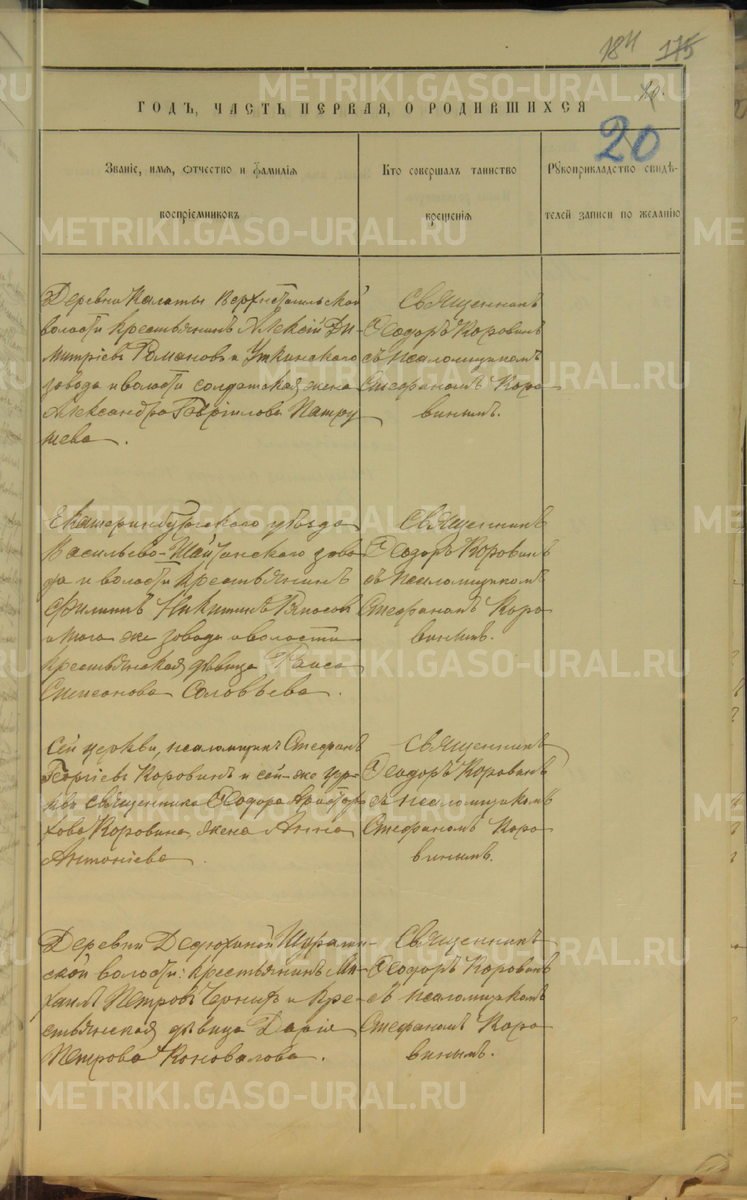 184 115
METRIKI.GASO-URAL.RU
ГОДЪ, ЧАСТЬ ПЕРВАЯ, О РОДИВШИХСЯ
20
Званіе, имя, отчество и фамилія
воспріемниковъ
Кто совершалъ таинство
крещенія
Рукоприкладство свидѣ-
телей записи по желанію
METRIKI.GASO-URAL.RU
Деревни Калаты Верхнетагильской
волости крестьянинъ Алексій Ди-
митріевъ Романовъ и Уткинскаго
завода и волости солдатская жена
Александра Гавріилова Патру
шева.
Священникъ
Ѳеодоръ Коровинъ
съ псаломщикомъ
Стефаномъ Коро
винымъ.
METRIKI.GASO-URAL.RU
Екатеринбургскаго уѣзда
Васильево-Шайтанскаго заво
да и волости крестьянинъ
Филиппъ Никитинъ
и того же завода и волости
крестьянская дѣвица Раиса
Соловьева.
Священникъ
Ѳеодоръ Коровинъ
съ псаломщикомъ
Стефаномъ Коро
винымъ.
METRIKI.GASO-URAL.RU
METRIKI.GASO-URAL.RU
Сей церкви, псаломщикъ Стефанъ
Георгіевъ Коровинъ и сей-же цер-
кви священника Ѳеодора Аристар
хова Коровина жена Анна
Антоніева.
Священникъ
Ѳеодоръ Коровинъ
съ псаломщикомъ
Стефаномъ Коро
винымъ.
METRIKI.GASO-URAL.RU
Деревни Дедюхиной
ской волости: крестьянинъ Ми-
хаилъ Петровъ Черныхъ и кре-
стьянская дѣвица Дарія
Петрова Коновалова.
Священникъ
Ѳеодоръ Коровинъ
съ псаломщикомъ
Стефаномъ Коро
винымъ.
METRIKI.GASO-URAL.RU
METRIKI.GASO-URAL.RU